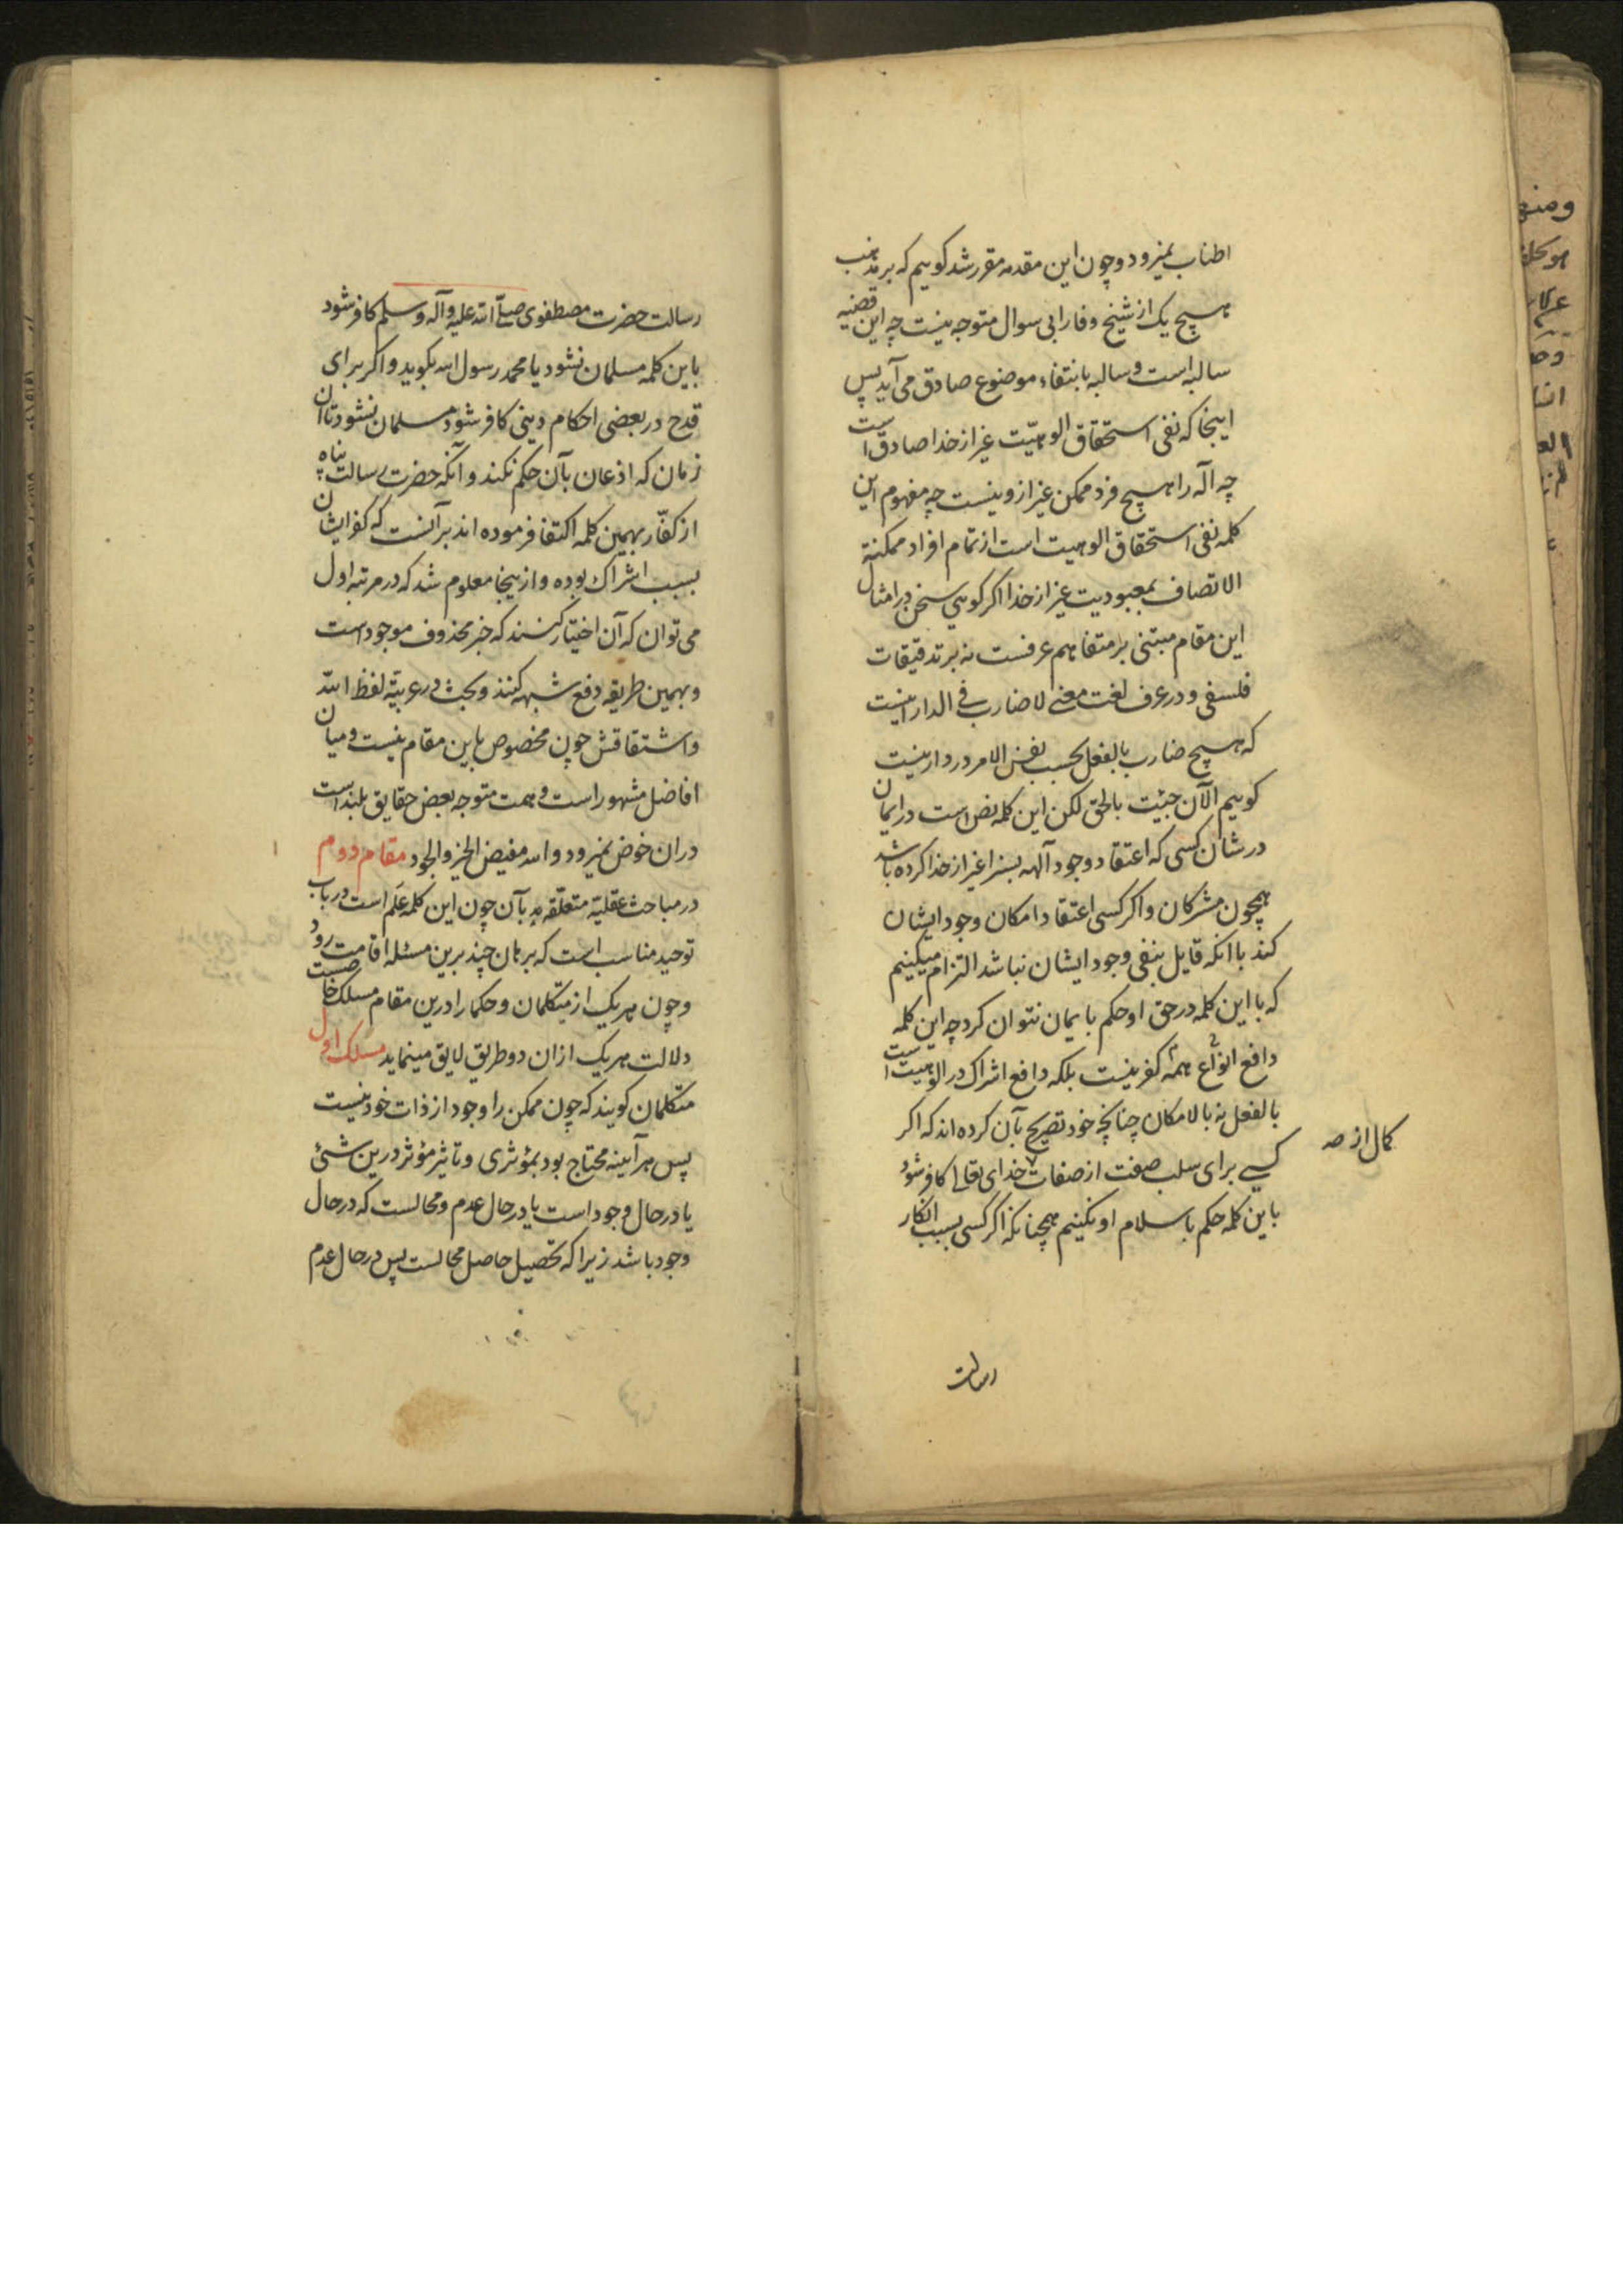 اطناب نمیرود و چون این مقدمه مقرر شد گوییم که بر مذهب
هیچ یک از شیخ و فارابی سوال متوجه نیست چه این قضیه
سالبه است و سالبه بانتفاء موضوع صادق می آید پس
اینجا که نفی استحقاق الوهیّت غیر از خدا صادق است
چه آله را هیچ فرد ممکن غیر ازو نیست چه مفهوم این
کلمه نفی استحقاق الوهیت است از تمام افراد ممکنة
الاتصاف بمعبودیت غیر از خدا اگر گویی سخن در امثال
این مقام مبتنی بر متفاهم عرفست نه بر تدقیقات
فلسفی و در عرف لغت معنی لا ضارب فی الدار اینست
که هیچ ضارب بالفعل بحسب نفس الامر در دار نیست
گوییم الآن جئت بالحق لکن این کلمه نص است در ایمان
در شان کسی که اعتقاد وجود آلهه بسزا غیر از خدا کرده باشد
همچون مشرکان و اگر کسی اعتقاد امکان وجود ایشان
کند با انکه قایل بنفی وجود ایشان نباشد التزام میکنیم
که با این کلمه در حق او حکم بایمان نتوان کرد چه این کلمه
دافع انواع همه کفر نیست بلکه دافع اشراک در الوهیت است
بالفعل نه بالامکان چنانچه خود تصریح بآن کرده اند که اگر
کسی برای سلب صفت از صفات خدای تعالی کافر شود
کمال از صه
باین کلمه حکم باسلام او نکنیم همچنانکه اگر کسی بسبب انکار
رسالت
رسالت حضرت مصطفوی صلّی الله علیه وآله وسلم کافر شود
باین کلمه مسلمان نشود یا محمد رسول الله بگوید و اگر برای
قدح در بعضی احکام دینی کافر شود مسلمان نشود تا آن
زمان که اذعان بآن حکم نکند و آنکه حضرت رسالت پناه
از کفّار بهمین کلمه اکتفا فرموده اند بر آنست که کفر ایشان
بسبب اشراک بوده و از ینجا معلوم شد که در مرتبه اول
می توان که آن اختیار کنند که خبر محذوف موجود است
و بهمین طریقه دفع شبهه کنند و بحث در عربیّة لفظ الله
و اشتقاقش چون مخصوص باین مقام نیست و میان
افاضل مشهور است و همت متوجه بعض حقایق بلند است
در ان خوض نمیرود و الله مفیض الخیر و الجود مقام دوم
در مباحث عقلیّة متعلّقه بآن چون این کلمه عَلَم است در باب
توحید مناسب است که برهان چند برین مسئله اقامت رود
و چون هر یک از متکلمان و حکما را درین مقام مسلک خاصیست
دلالت هر یک از ان دو طریق لایق مینماید مسلک اول
متکلمان گویند که چون ممکن را وجود از ذات خود نیست
پس هر آیینه محتاج بود بمؤثری و تاثیر مؤثر درین شئ
یا در حال وجود است یا در حال عدم و محالست که در حال
وجود باشد زیرا که تحصیل حاصل محالست پس در حال عدم